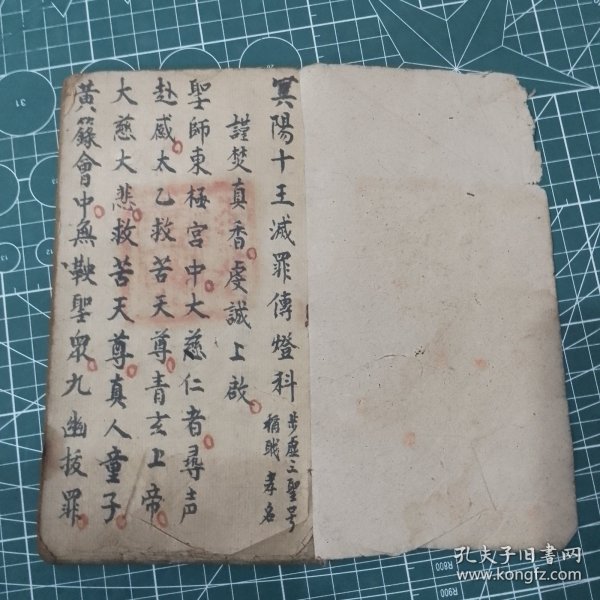 冥陽十王滅罪傳燈科 步虛 三聖号 稱职 孝名
謹焚真香虔誠上啟
聖師東極宮中大慈仁者尋声
赴感太乙救苦天尊青玄上帝
大慈大悲救苦天尊真人童子
黃籙會中無鞅聖眾九幽拔罪
孔夫子旧书网
www.kongfz.com